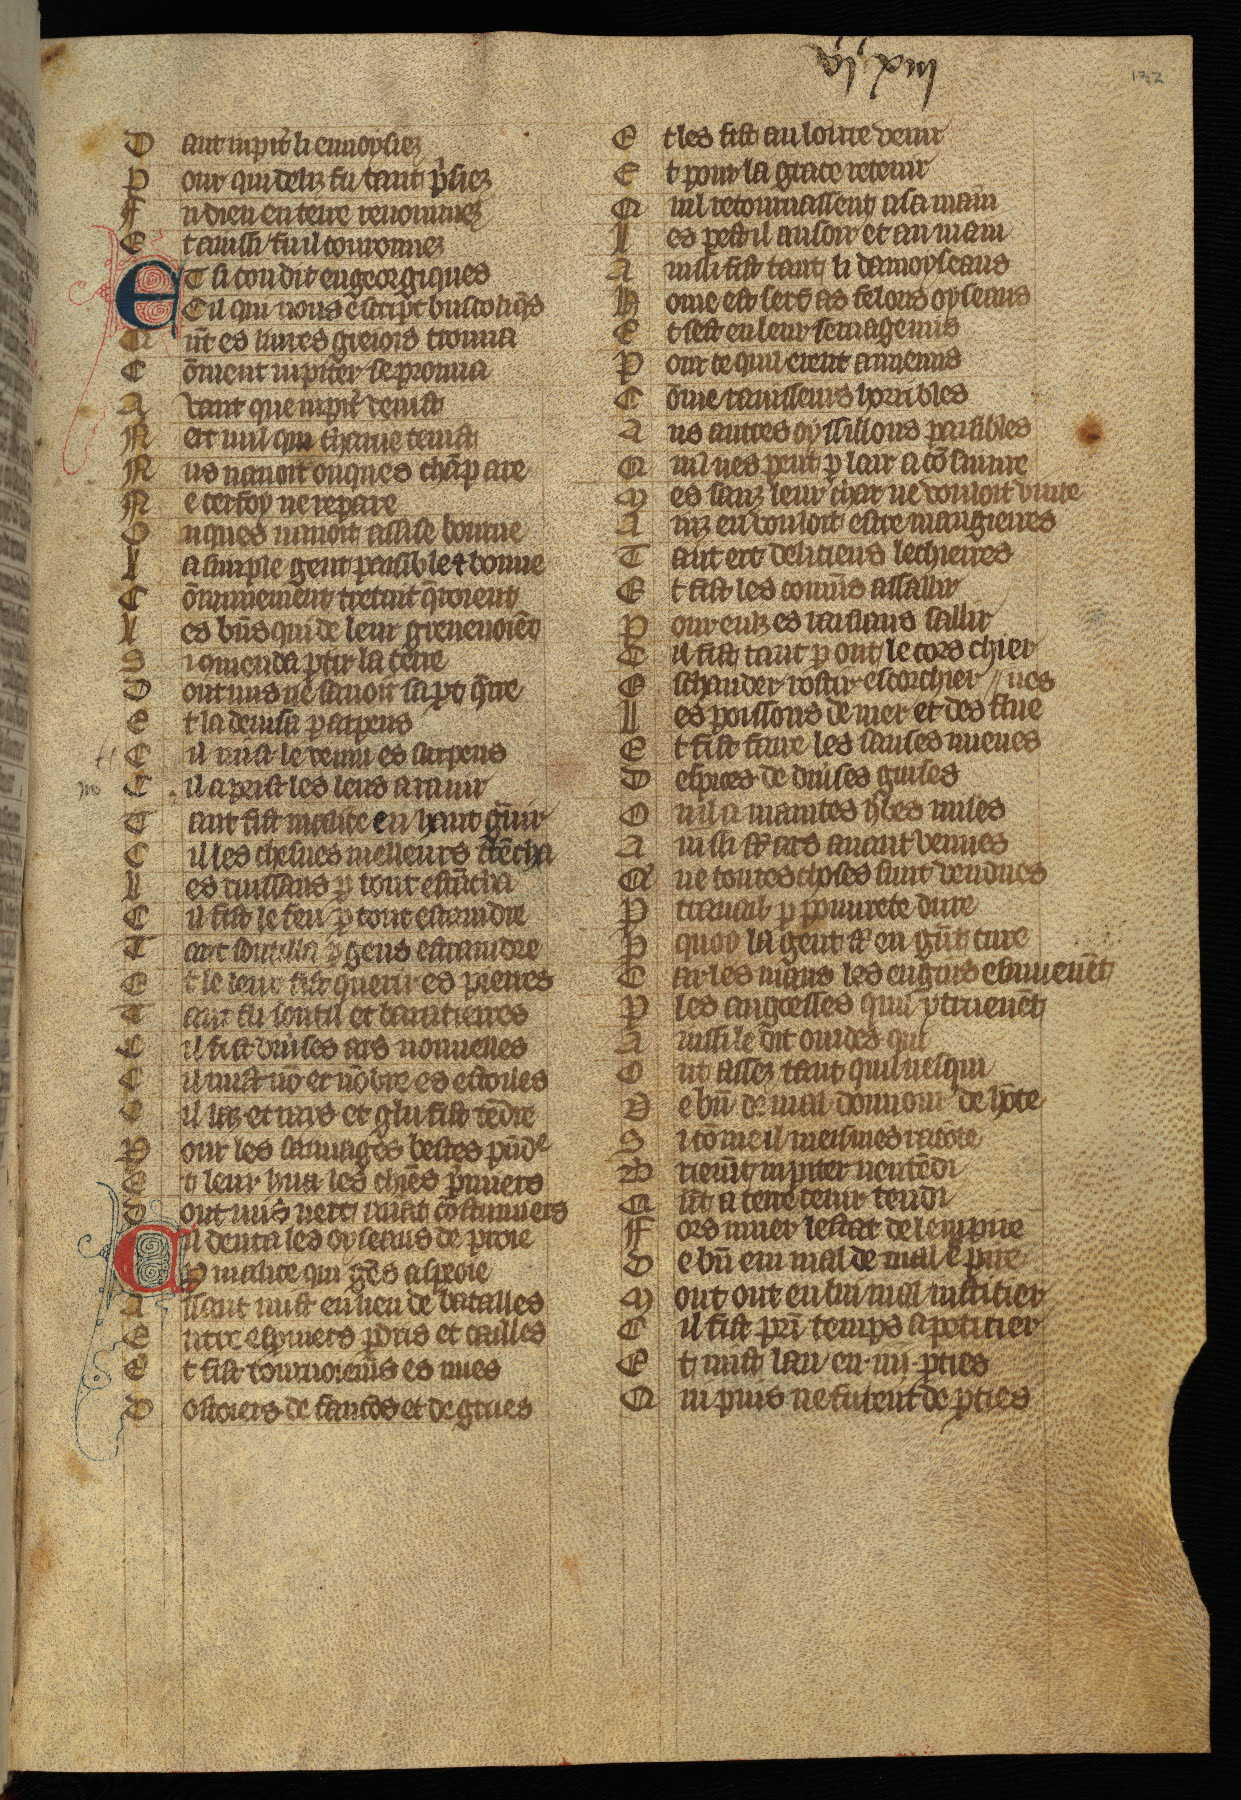 D ant iupiter li enuoysiez
P our qui deliz fu tant prisiez
F u dieu en terre renommez
E t aussi fu il couronnez
ET si con dit en georgiques
Cil qui nous escript bucoliqes
Qu nt es liures greiois trouua
C õment iupiter se prouua
A vant que iupiter venist
N ert nul qui charue tenist
N us nauoit onques chãp are
N e cerfoy ne repare
O nques nauoit assise bonne
L a simple gent paisible et bonne
C õmunement tretuit queroient
L es bñs qui de leur gre uenoiẽt
S i omenda partir la terre
D ont nus ne sauoit sa part querre
E t la deuisa par arpens
C il mist le venin es serpens
C il aprist les leus a rauir
T ant fist malice en haut grauir
C il les chesnes melleurs trẽcha
L es ruissaus par tout estãcha
C il fist le feu par tout estaindre
T ant soutilla par gens estraindre
E t le leur fist querir es pierres
T ant fu soutil et baratierres
C il fist diuises ars nouuelles
C il mist nõ et nõbre es estoilles
C il laz et rays et glu fist tẽdre
P our les sauuages bestes prẽdre
E t leur hua les chiens premiers
D ont nus nert auãt coustumiers
Cil donta les oyseaus de proie
Par malice qui gẽs asproie
A ssaut mist en lieu de batailles
E ntre espriuers perdris et cailles
E t fist tournoiemẽs es nues
D ostoirs de faucõs et de grues
E t les fist au loirre venir
E t pour la grace retenir
Qu il retournassent a sa main
L es pest il au soir et au main
A insi fist tant li damoyseaus
H ome est serf as felons oyseaus
E t sest en leur seruage mis
P our ce quil erent annemis
C õme rauisseurs horribles
A us autres oysillons paisibles
Qu il nes peut par lair aconsiurre
M es sanz leur char ne vouloit viure
A inz en vouloit estre mangierres
T ant ert delicieus lechierres
E t fist les connĩs assallir
P our eulz es raisiaus sallir
C il fist tant par ont le cors chier
E schauder rostir escorchier
L es poissons de mer et des flueues
E t fist faire les sauses nueues
D espices de diuises guises
O u il a maintes herbes mises
A insi sõt ars auant venues
Qu ue toutes choses sunt veinques
P ar trauail par pourete dure
P ar quoy la gent sõt en grãt cure
C ar les maus les engins esmueuẽt
P ar les angoesses quil y truevẽt
A insi le dit ouides qui
O ut assez tant quil uesqui
D e bñ de mal donnour de hõte
S i cõme il meismes racõte
B rieumt iupiter nentẽdi
Qu ãt a terre tenir tendi
F ors muer lestat de lempire
D e bñ en mal de mal e pire
M out out en lui mol iusticier
C il fist prĩ temps apeticier
E t mist lan en .iiij. pties